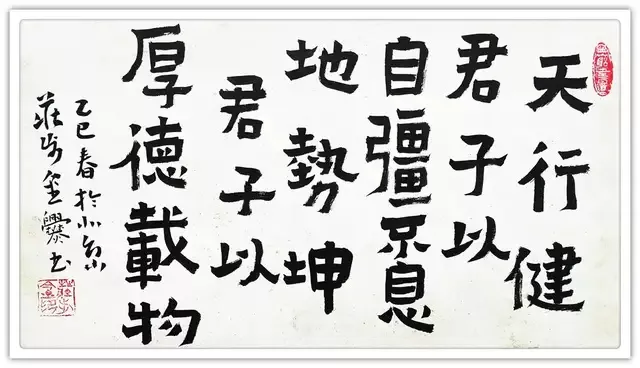 天行健
君子以
自彊不息
地勢坤
君子以
厚德載物
乙巳春於北京
莊步金爨书